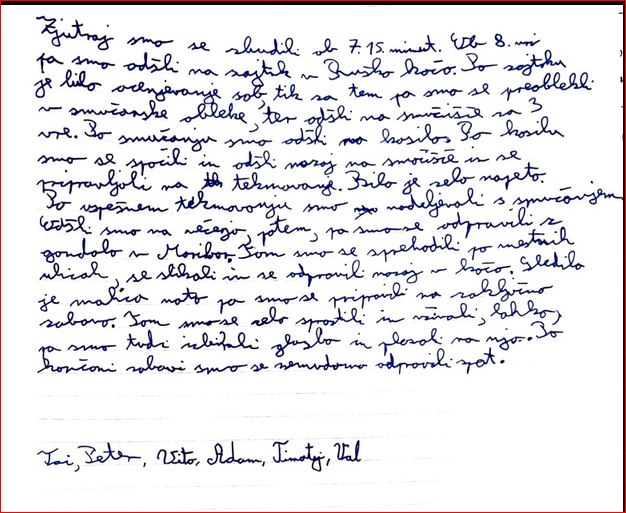 Zjutraj smo se zbudili ob 7.15. minut. Ob 8. uri
pa smo odšli na zajtrk v Ruško kočo. Po zajtrku
je bilo ocenjevanje sob, tik za tem pa smo se preoblekli
v smučarske obleke, ter odšli na smučišče za 3
ure. Po smučanju smo odšli na kosilo. Po kosilu
smo se spočili in odšli nazaj na smučišče in se
pripravljali na tekmovanje. Bilo je zelo napeto.
Po uspešnem tekmovanju smo nadeljevali s smučanjem.
Odšli smo na večerjo, potem, pa smo se odpravili z
gondolo v Maribor. Tam smo se sprehodili po mestnih
ulicah, se slikali in se odpravili nazaj v kočo. Sledila
je malica nato pa smo se pripravili na zaključno
zabavo. Tam smo se zelo sprostili in uživali, lahko,
pa smo tudi izbirali glasbo in plesali na njo. Po
končani zabavi smo se nemudoma odpravili spat.
Tai, Peter, Vito, Adam, Timotej, Val